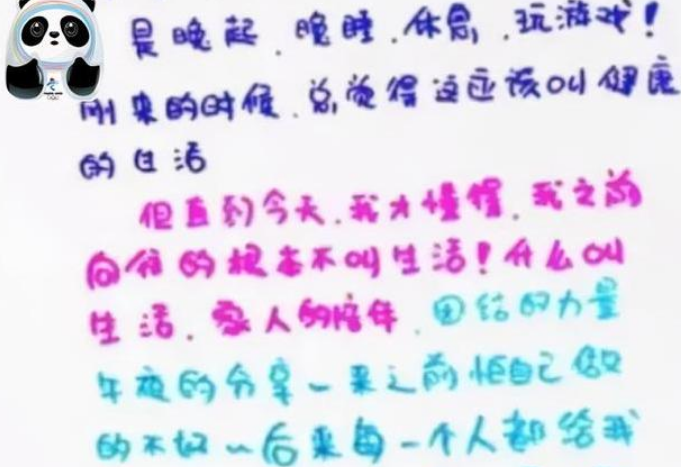 是晚起、晚睡、休息、玩游戏!
刚来的时候、总觉得这应该叫健康
的生活
但直到今天、我才懂得、我之前
向往的根本不叫生活!什么叫
生活、家人的陪伴、团结的力量
午夜的分享一来之前怕自己做
的不好～后来每一个人都给我